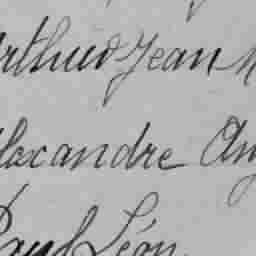 Arthur Jean M
Alexandre Aug
Paul Léon